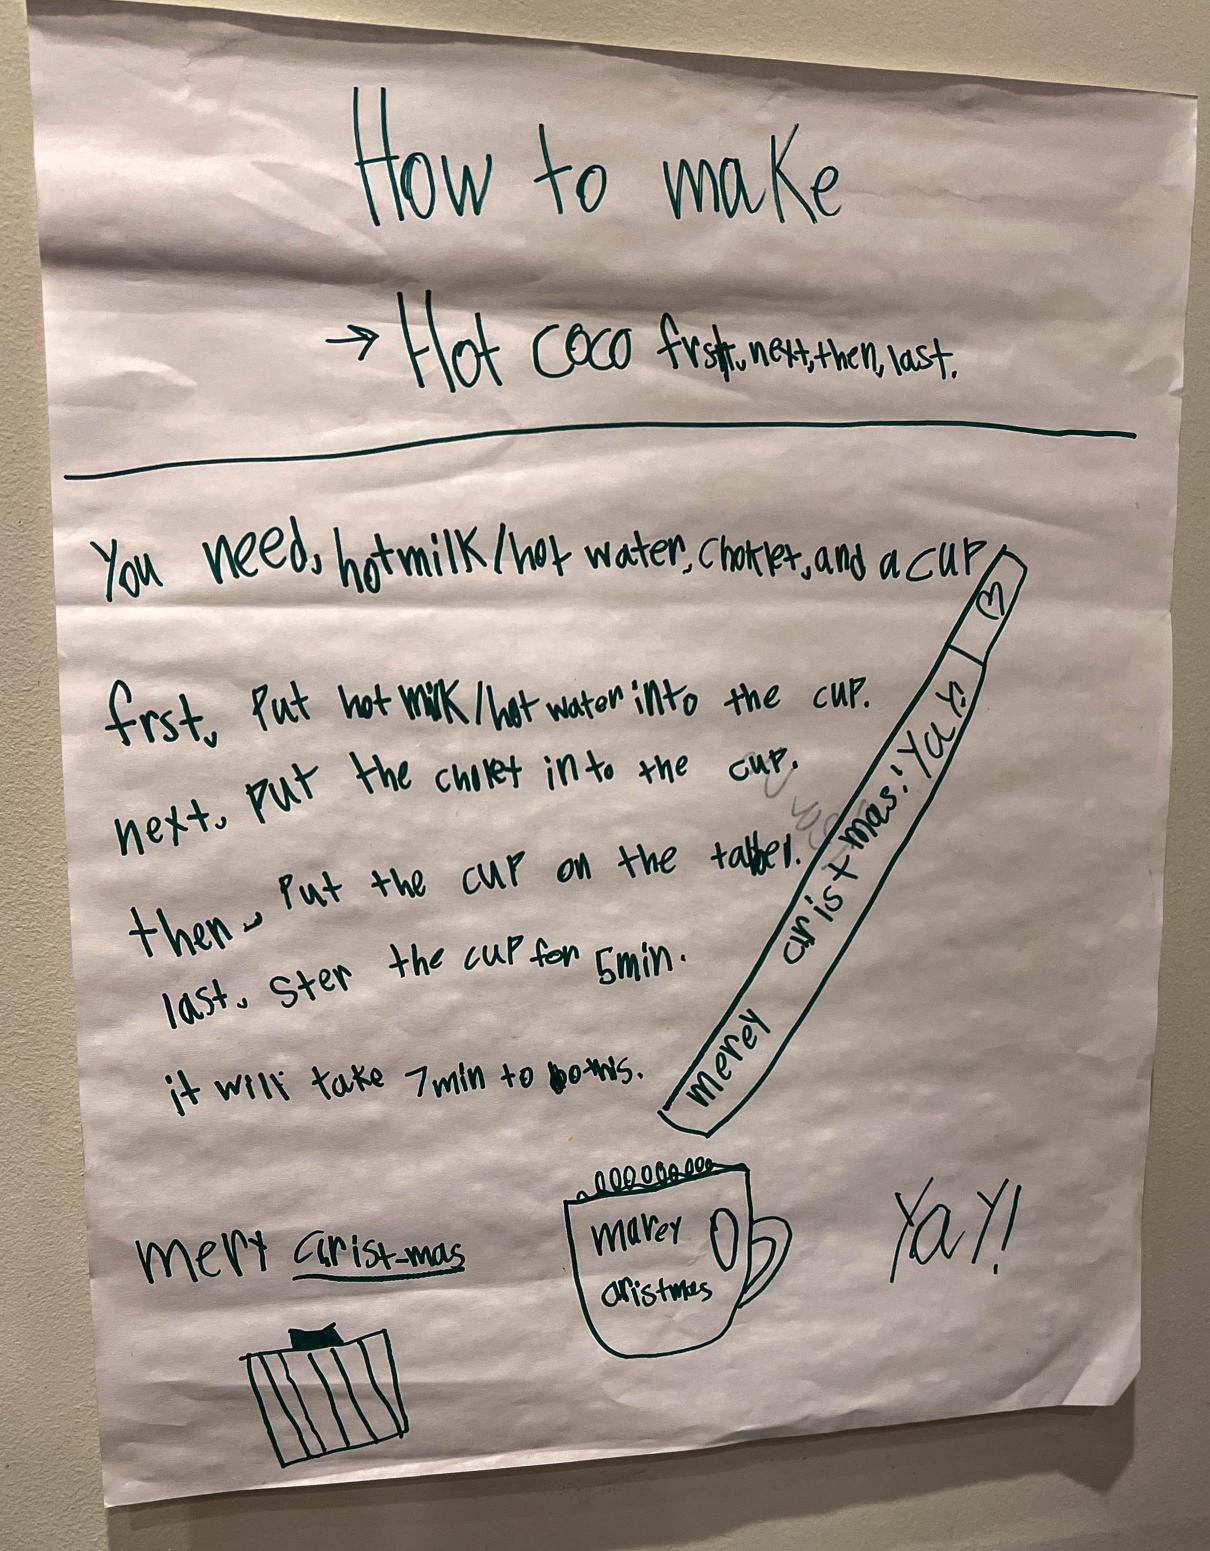 How to make
→ Hot coco frst, next, then, last.
You need, hot milk/hot water, choklet, and a cup
frst, Put hot milk/hot water into the cup.
next, put the choket into the cup.
then, Put the cup on the
last, ster the cup for 5min.
it will take 7min to
merey crist mas! Yay!
mery crist-mas
marey
cristmas
Yay!